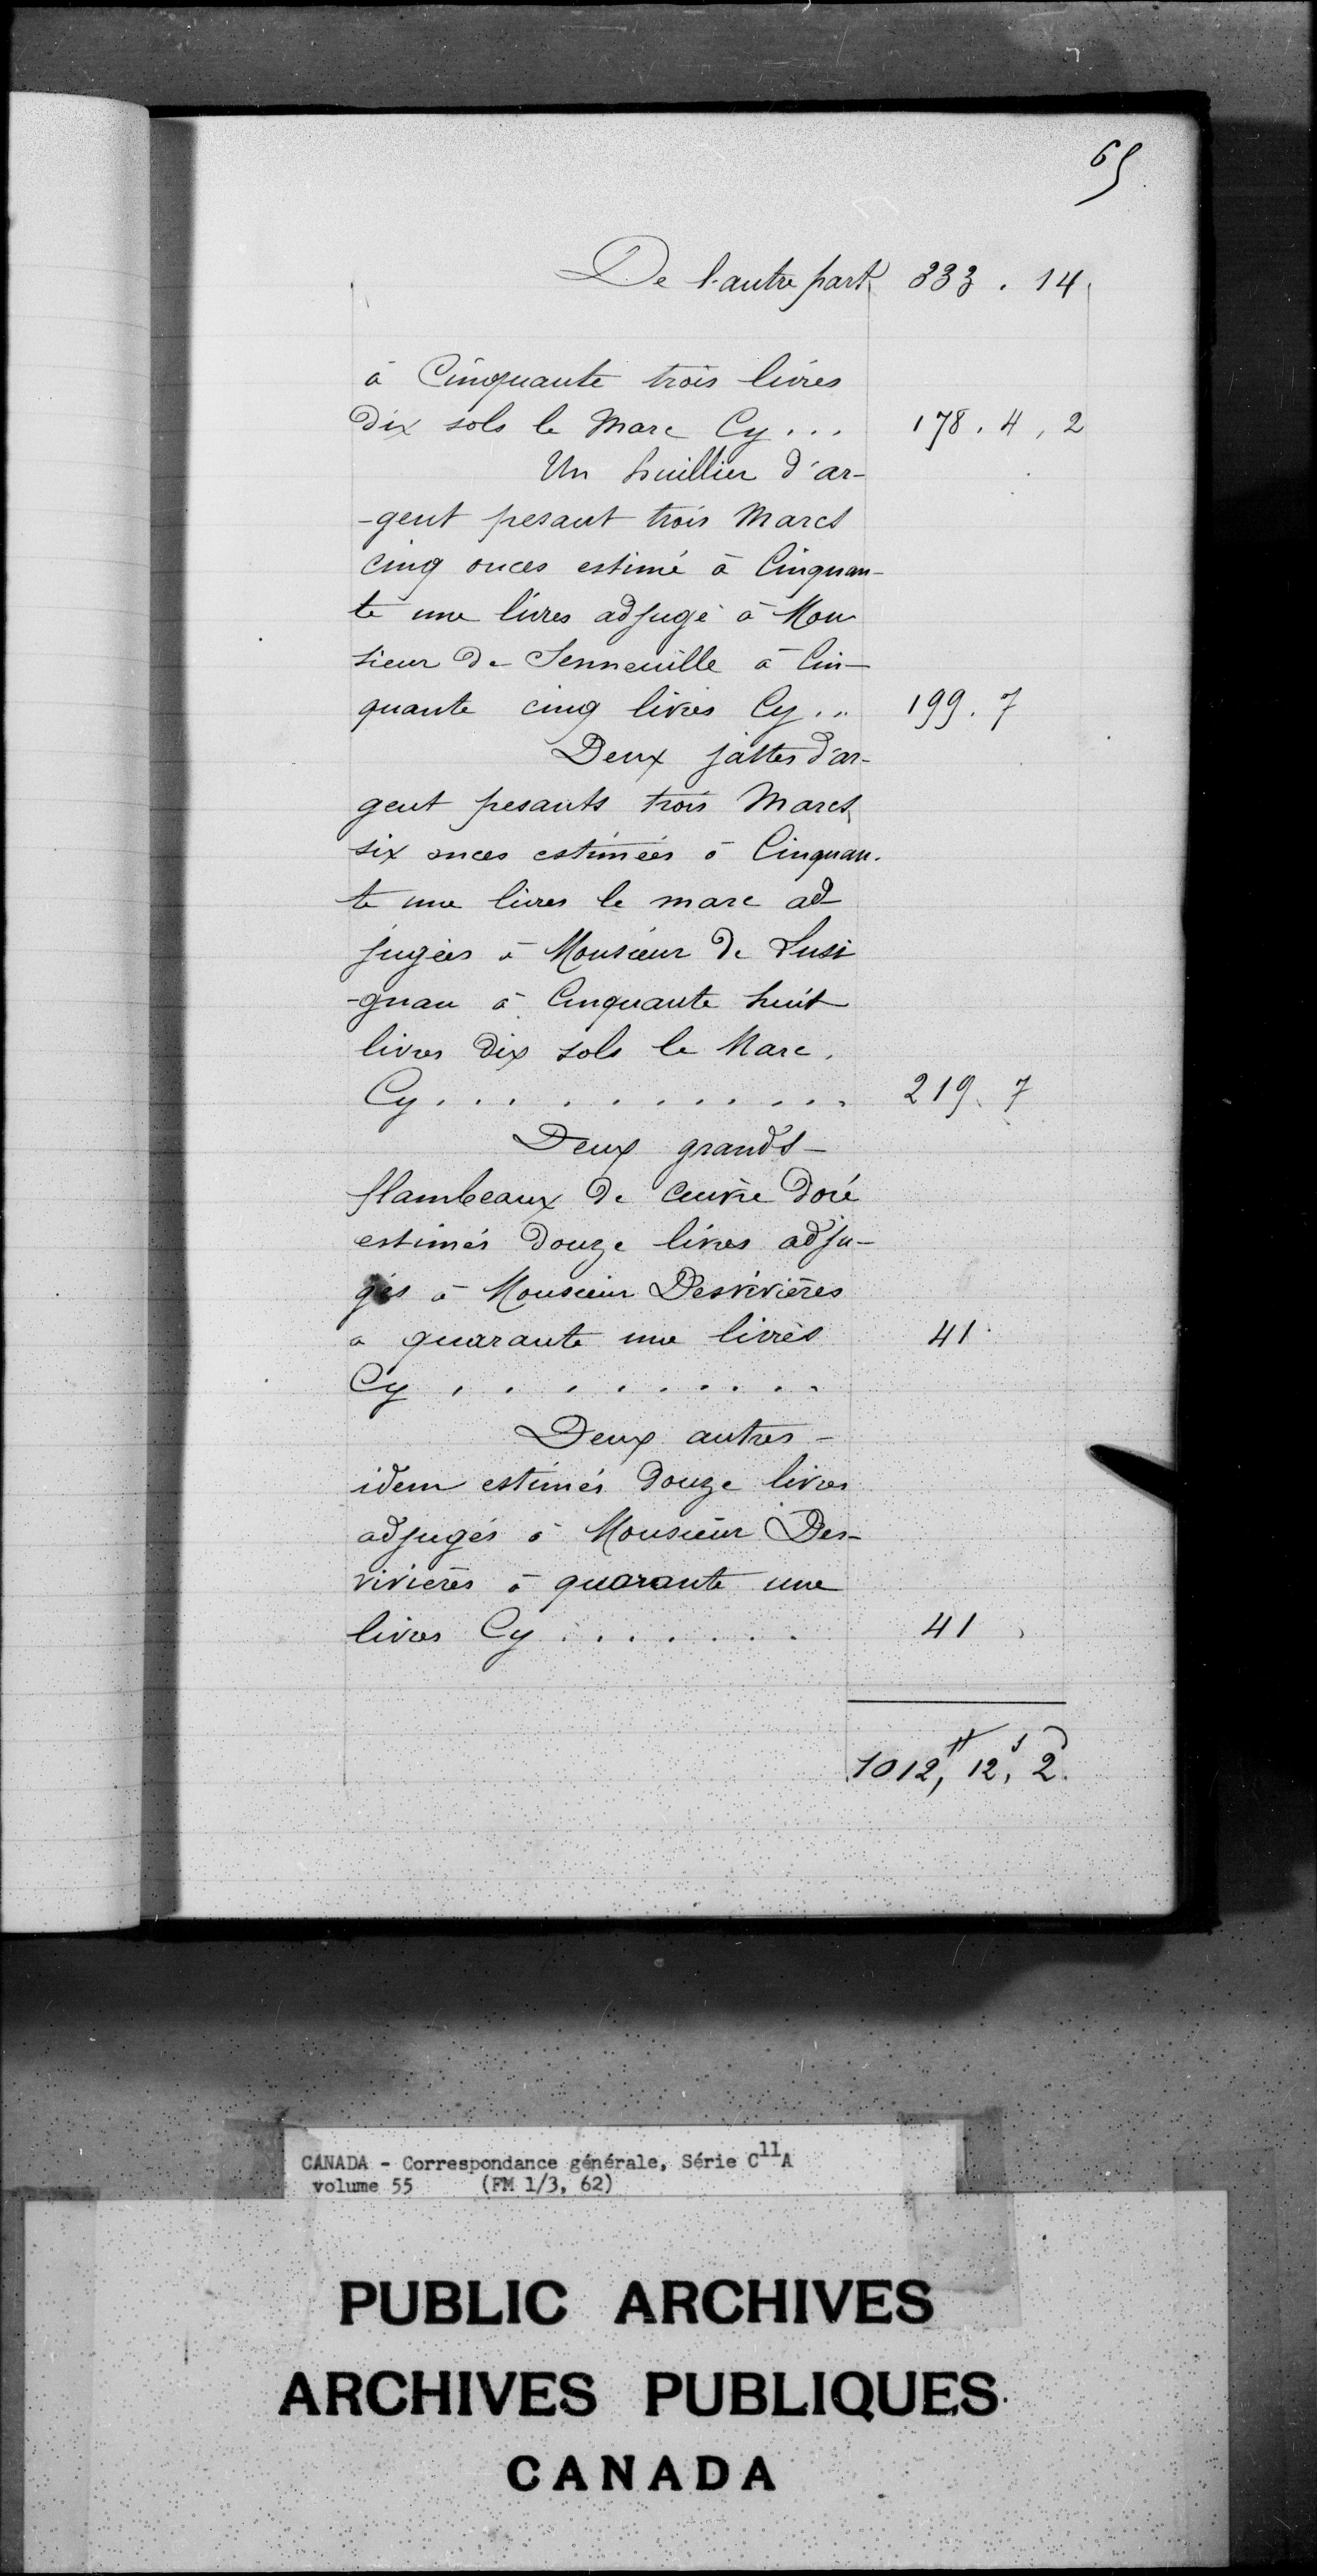 65
De l'autre part 333 . 14
à Cinquante trois livres
dix sols le Marc Cy ... 178 . 4 , 2
Un huillier d'ar-
-gent pesant trois Marcs
cinq onces estimé à Cinquan-
te une livres adjugé à Mon
sieur de Senneville à Cin-
quante cinq livres Cy ... 199 . 7
Deux jattes d'ar-
gent pesants trois Marcs
six onces estimées à Cinquan-
te une livres le marc ad
jugées à Monsieur de Lusi
-gnan à Cinquante huit
livres dix sols le Marc.
Cy . . . . . . . . . . . 219 . 7
Deux grands -
flambeaux de cuivre doré
estimés douze livres adju-
gés à Monsieur Desrivières
a quarante une livres 41
Cy . . . . . . . . . .
Deux autres -
idem estimés douze livres
adjugés à Monsieur Des-
rivières à quarante une
livres Cy . . . . . . . 41
1012,ᵗᵗ 12,ˢ 2.ᵈ
CANADA - Correspondance générale, Série C11A
volume 55 (FM 1/3, 62)
PUBLIC ARCHIVES
ARCHIVES PUBLIQUES
CANADA